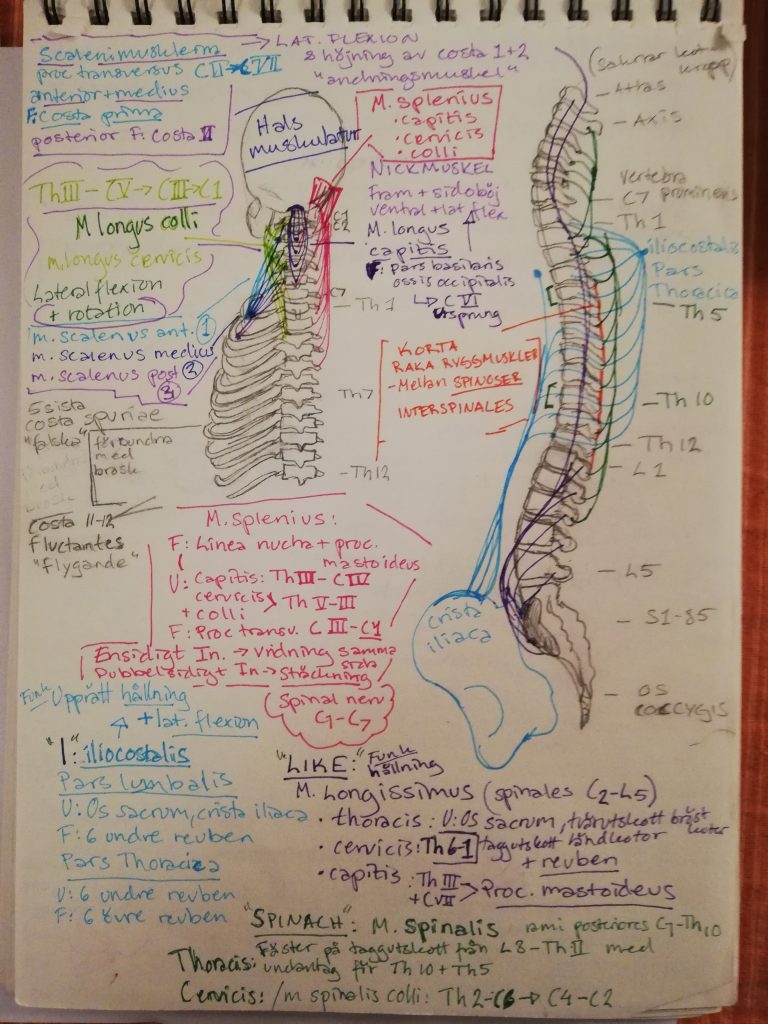 Scalenimusklerna → LAT. FLEXION
proc transversus CII→CVII
& höjning av costa 1+2
"andningsmuskel"
anterior + medius
F: Costa prima
posterior F: Costa II
Hals
muskulatur
M. splenius
• capitis
• cervicis
• colli
NICKMUSKEL
Fram + sidoböj
ventral + lat flex
M. longus
capitis
F: Pars basilaris
ossis occipitalis
↳ C VI
Ursprung
ThIII - CV → CIII → C1
M longus colli
m. longus cervicis
Lateral flexion
+ rotation
m. scalenus ant. 1
m. scalenus medius 2
m. scalenus post 3
C1
C2
C7
Th1
Th7
Th12
5 sista
costa spuriae
"falska"
förbundna
med
brosk
Costa 11-12
fluctantes
"flygande"
KORTA
RAKA RYGGMUSKLER
- Mellan SPINOSER
INTERSPINALES
Atlas
Axis
vertebra
C7 prominens
Th 1
iliocostalis
Pars
Thoracica
Th 5
Th 10
Th 12
L1
L5
S1-S5
OS
COCCYGIS
crista
iliaca
M. Splenius:
F: Linea nucha + proc.
mastoideus
U: Capitis: ThIII - CIV
cervicis
+ colli > Th V-III
F: Proc transv. C III-C1
Ensidigt In. → Vridning samma
sida
Dubbelsidigt In → Sträckning
Spinal nerv
C1-C7
Funk Upprätt hållning
+ lat. flexion
"I": iliocostalis
Pars lumbalis
U: Os sacrum, crista iliaca
F: 6 undre revben
Pars Thoracica
U: 6 undre revben
F: 6 övre revben
"LIKE:" Funk
hållning
M. Longissimus (spinales C2-L5)
• thoracis: U: Os sacrum, tvärutskott bröst
kotor
• cervicis: Th 6-1 taggutskott ländkotor
+ revben
• capitis: ThIII
+ CVII > Proc. mastoideus
"SPINACH": M. Spinalis rami posteriores C1-Th10
Thoracis: Fäster på taggutskott från L3-ThII med
undantag för Th10 + Th5
Cervicis: /m spinalis colli: Th2-C6 → C4-C2